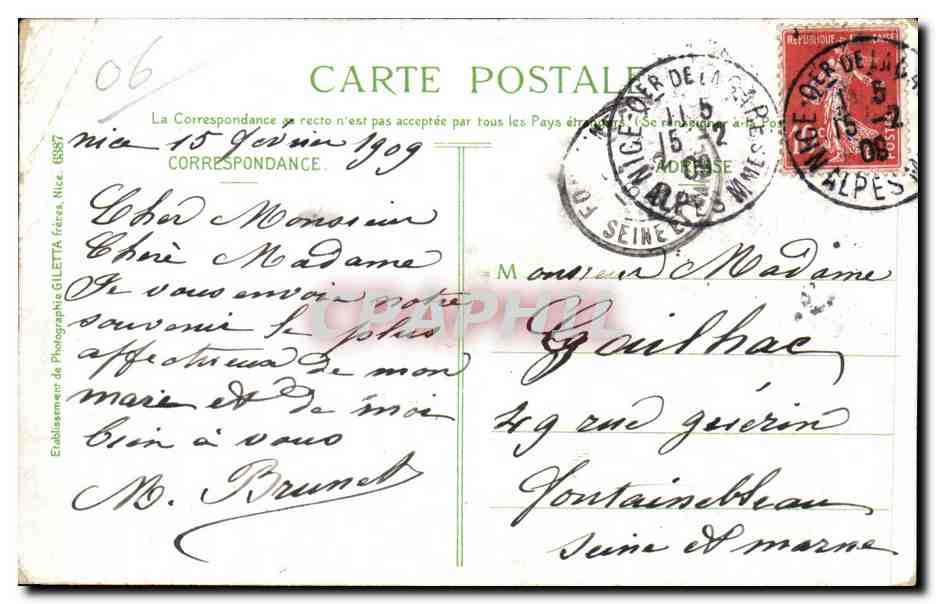 06
CARTE POSTALE
La Correspondance au recto n'est pas acceptée par tous les Pays étrangers (Se renseigner à la Pos
nice 15 février 1909
CORRESPONDANCE
ADRESSE
Cher Monsieur
Cherè Madame
Je vous envoie notre
souvenir le plus
affectueux de mon
mari et de moi
bien à vous
M. Brunet
Monsieur Madame
Gailhac
49 rue guérin
fontainebleau
Seine et marne
Etablissement de Photographie GILETTA frères, Nice. 6387
REPUBLIQUE FRANÇAISE
10c
POSTES
NICE QER DE LA GARE
11 5
15 - 2
09
ALPES MMES
NICE QER DE LA GA
5
15 2
09
ALPES M
FO
SEINE E
CPAPHIL